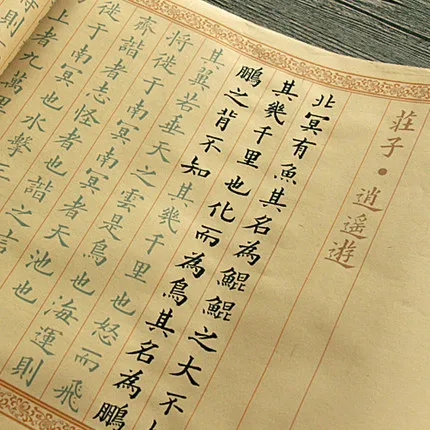 莊子·逍遙遊
北冥有魚其名為鯤鯤之大不
其幾千里也化而為鳥其名為鵬
鵬之背不知其幾千里也怒而飛
其翼若垂天之雲是鳥也海運則
將徙于南冥南冥者天池也
齋諧者志怪者也諧之言
徙于南冥也水擊三
上者九萬里